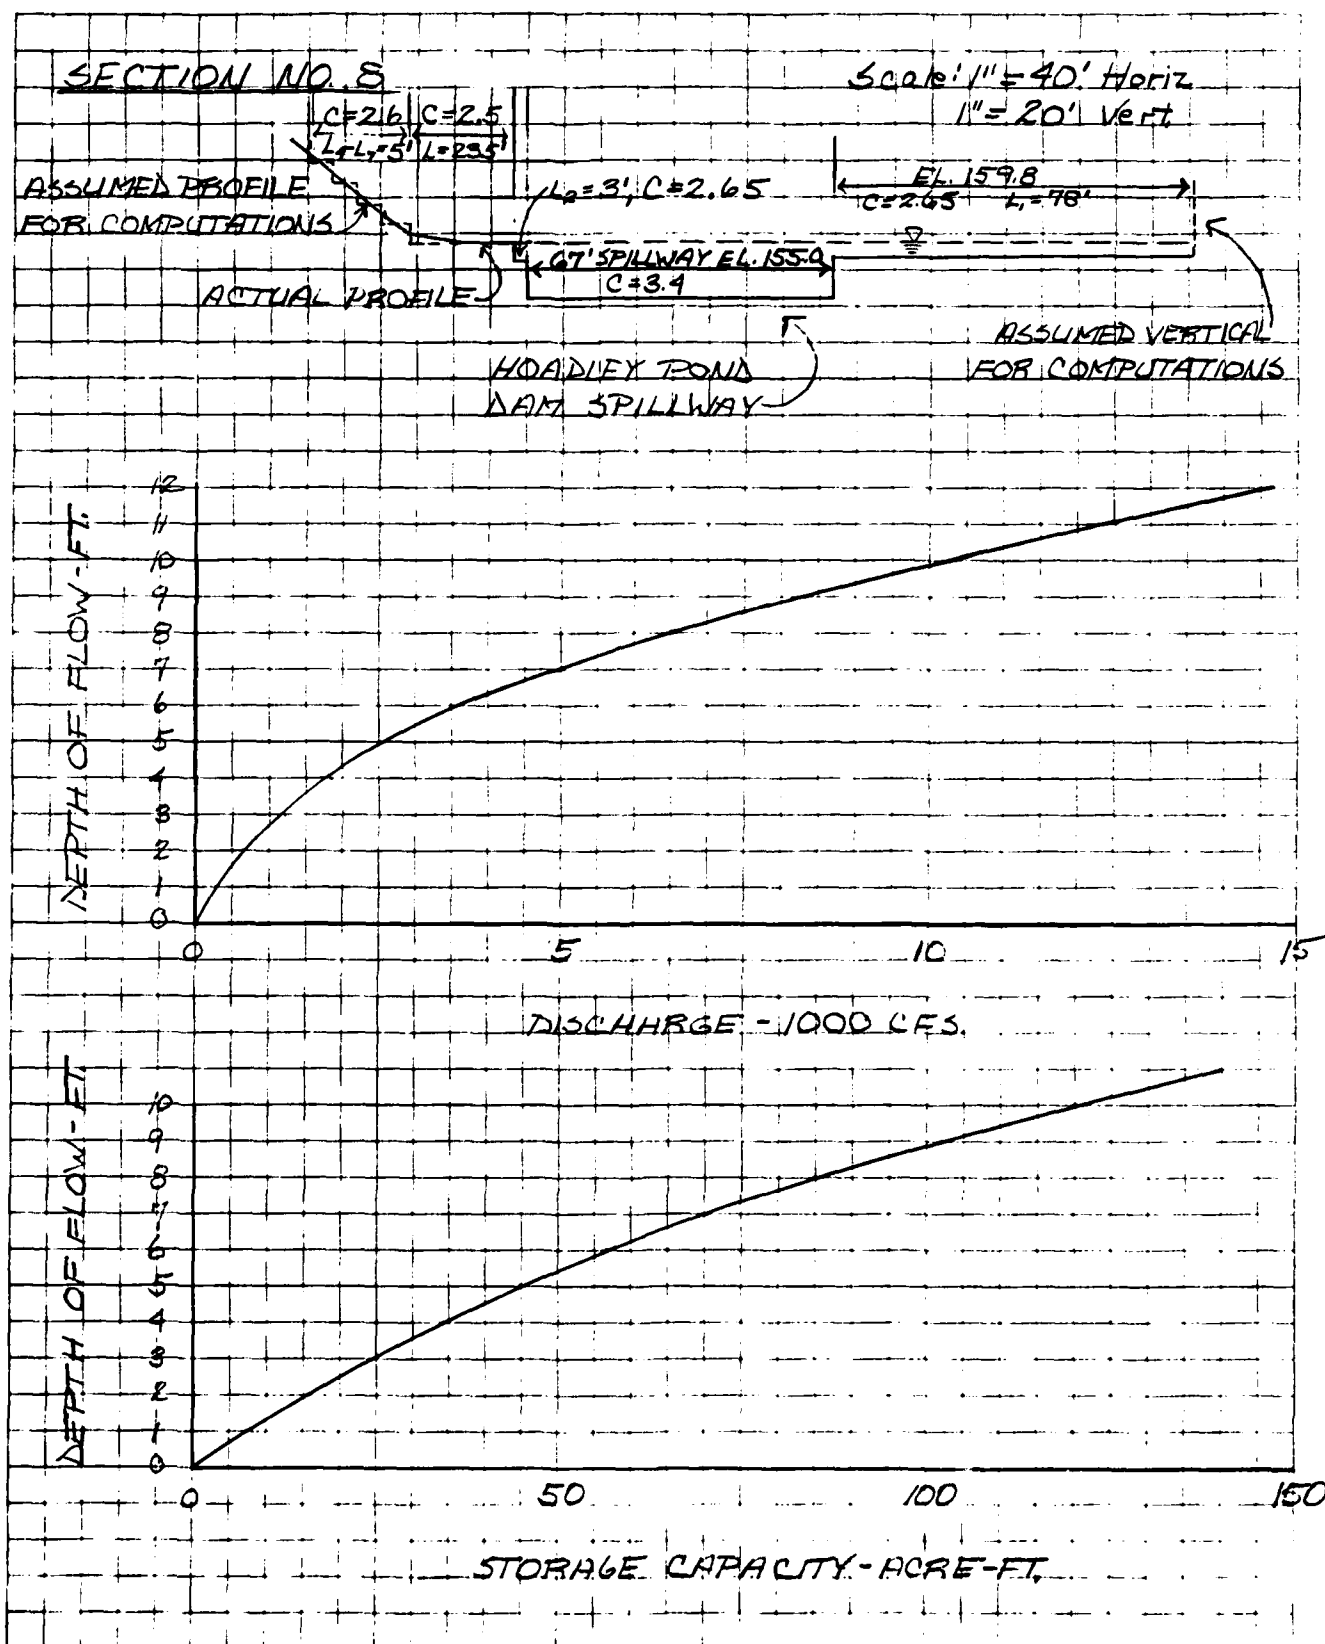 SECTION NO. 8
Scale: 1" = 40' Horiz
1" = 20' Vert
C=2.6
C=2.5
L=5'
L=23.5'
ASSUMED PROFILE
FOR COMPUTATIONS
L₂=3', C=2.65
EL. 159.8
C=2.65 L₁=78'
67' SPILLWAY EL. 155.0
C=3.4
ACTUAL PROFILE
HOADLEY POND
DAM SPILLWAY
ASSUMED VERTICAL
FOR COMPUTATIONS
DEPTH OF FLOW - FT.
12
11
10
9
8
7
6
5
4
3
2
1
0
0 5 10 15
DISCHARGE - 1000 CFS.
DEPTH OF FLOW - FT.
10
9
8
7
6
5
4
3
2
1
0
0 50 100 150
STORAGE CAPACITY - ACRE-FT.